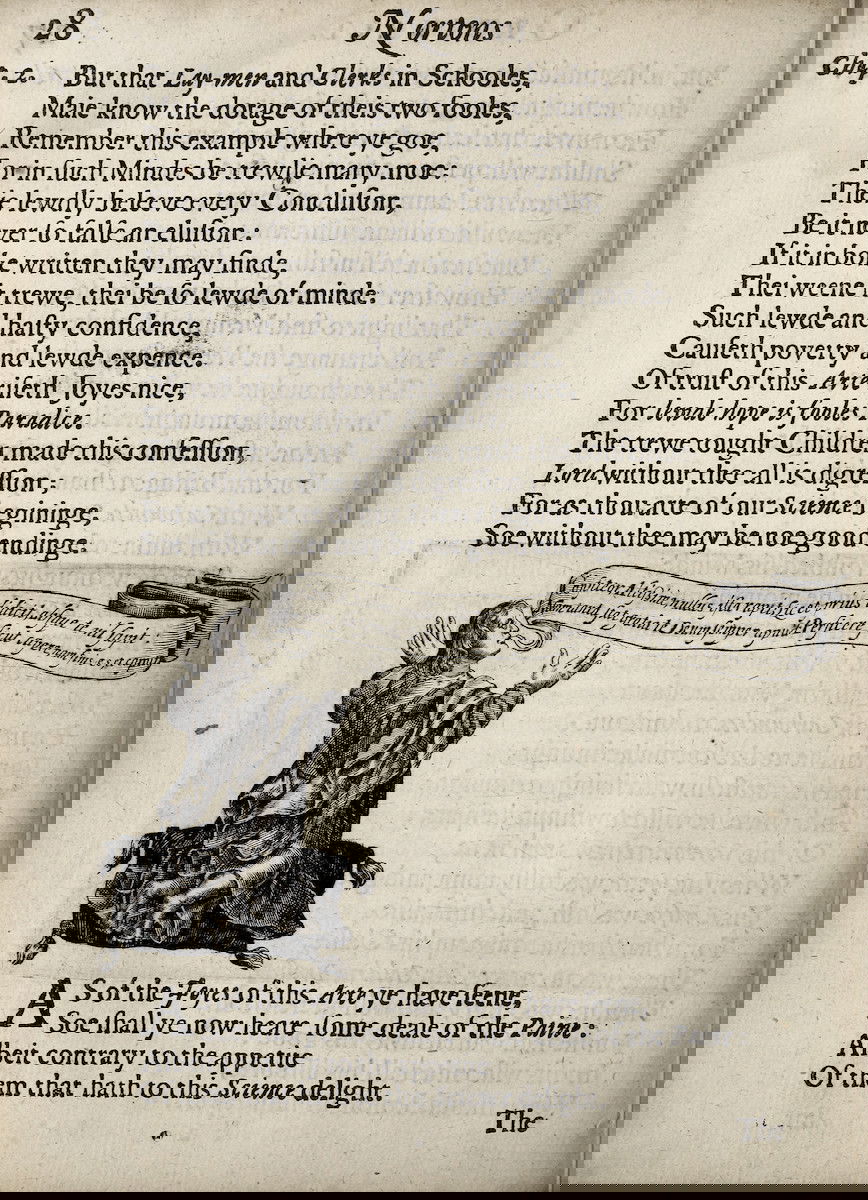 28 Nortons
But that Lay-men and Clerks in Schooles,
Maie know the dotage of theis two fooles,
Remember this example where ye goe,
For in such Mindes be trewlie many moe:
Theie lewdly beleeve every Conclusion,
Be it never so false an elusion:
If it in boke written they may finde,
Thei weene it trewe, thei be so lewde of minde.
Such lewde and hasty confidence,
Causeth poverty and lewde expence.
Of trust of this Arte riseth Joyes nice,
For lewde hope is fooles Paradice.
The trewe tought Children made this confession,
Lord without thee all is digression;
For as thou arte of our Science begininge,
Soe without thee may be noe good endinge.
AS of the Joyes of this Arte ye have seene,
Soe shall ye now heare some deale of the Paine:
Albeit contrary to the appetite
Of them that hath to this Science delight.
The